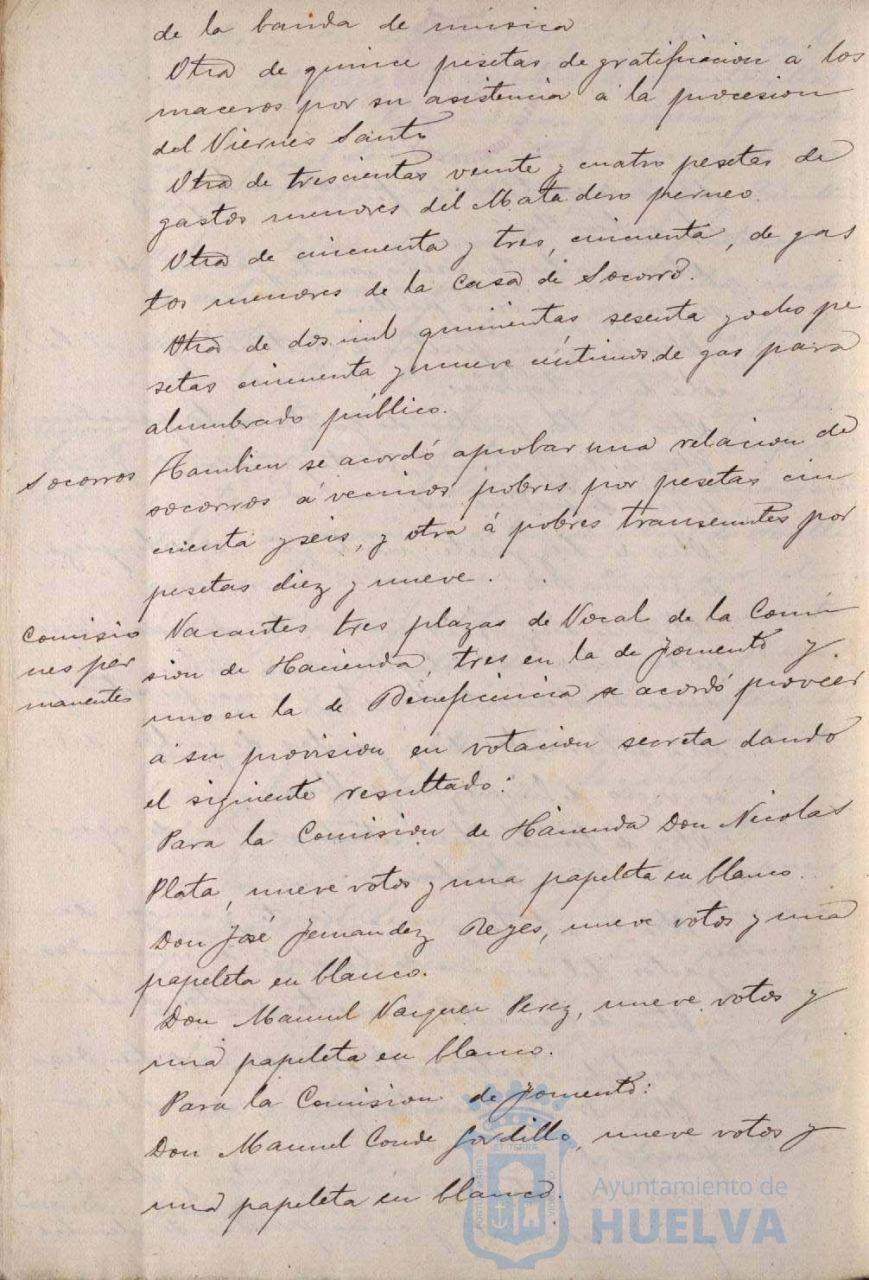 de la banda de música
Otra de quince pesetas de gratificacion á los
maceros por su asistencia á la procesion
del Viernes Santo
Otra de trescientas veinte y cuatro pesetas de
gastos menores del Matadero
Otra de cincuenta y tres, cincuenta, de gas
tos menores de la Casa de Socorro.
Otra de dos mil quinientas sesenta y ocho pe
setas cincuenta y nueve céntimos de gas para
alumbrado público.
Socorros
Tambien se acordó aprobar una relacion de
socorros á vecinos pobres por pesetas cin
cuenta y seis, y otra á pobres transeuntes por
pesetas diez y nueve.
Comisio
nes per
manentes
Vacantes tres plazas de Vocal de la Comi
sion de Hacienda, tres en la de Fomento y
uno en la de Beneficencia se acordó proveer
á su provision en votacion secreta dando
el siguiente resultado:
Para la Comision de Hacienda Don Nicolas
Plata, nueve votos y una papeleta en blanco.
Don José Fernandez Reyes, nueve votos y una
papeleta en blanco.
Don Manuel Vazquez Perez, nueve votos y
una papeleta en blanco.
Para la Comision de Fomento:
Don Manuel Conde Gordillo, nueve votos y
una papeleta en blanco.
Ayuntamiento de
HUELVA